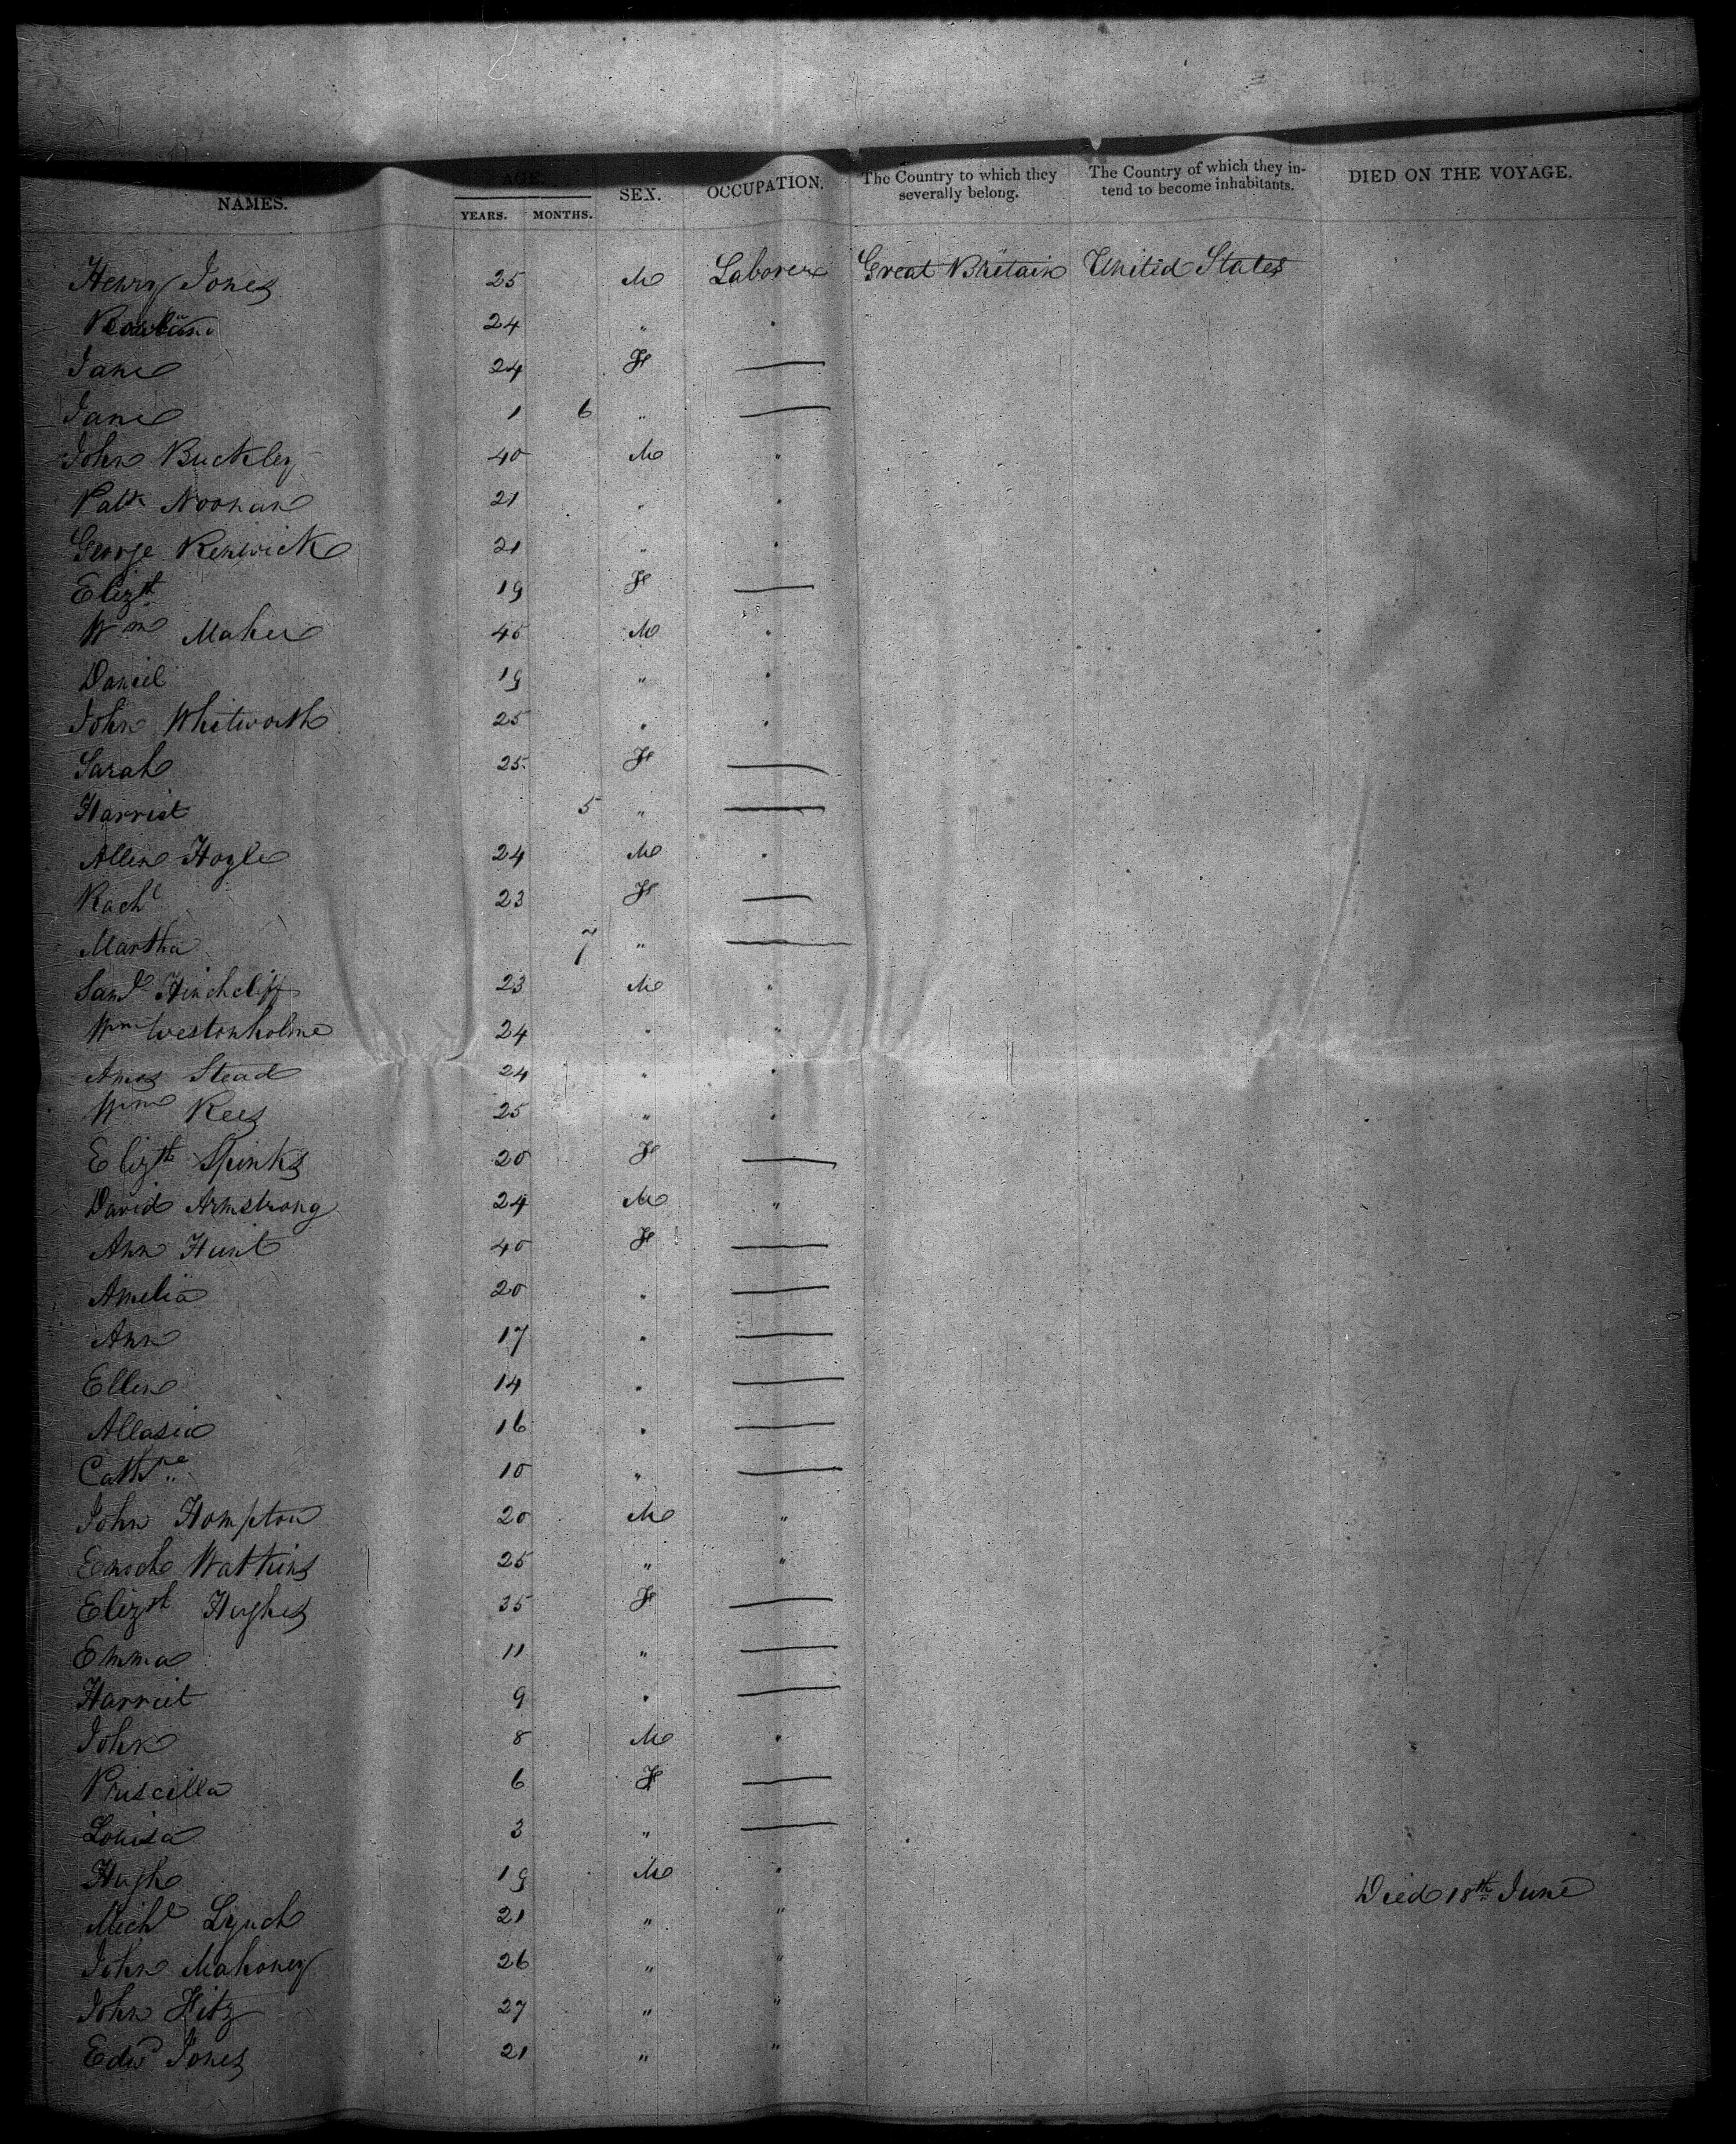 NAMES. AGE. SEX. OCCUPATION. The Country to which they severally belong. The Country of which they intend to become inhabitants. DIED ON THE VOYAGE.
YEARS. MONTHS.
Henry Jones 25 M Laborer Great Britain United States
24 " "
Jane 24 F —
Jane 1 6 " —
John Buckley 40 M "
Patk Noonan 21 " "
George Renwick 21 " "
Elizth 19 F —
Wm Maher 45 M "
Daniel 19 " "
John Whitworth 25 " "
Sarah 25 F —
Harriet 5 " —
Allen Hoyle 24 M "
Rachl 23 F —
Martha 7 " —
Saml Hinchcliff 23 M "
Wm Westonholme 24 " "
Amos Stead 24 " "
Wm Rees 25 " "
Elizth Spinks 20 F —
David Armstrong 24 M "
Ann Hunt 40 F —
Amelia 20 " —
Ann 17 " —
Ellen 14 " —
Allasia 16 " —
Cathne 10 " —
John Hompton 20 M "
Enoch Watkins 25 " "
Elizth Hughes 35 F —
Emma 11 " —
Harriet 9 " —
John 8 M "
Priscilla 6 F —
Louisa 3 " —
Hugh 19 M " Died 18th June
Michl Lynch 21 " "
John Mahoney 26 " "
John Fitz 27 " "
Edwd Jones 21 " "